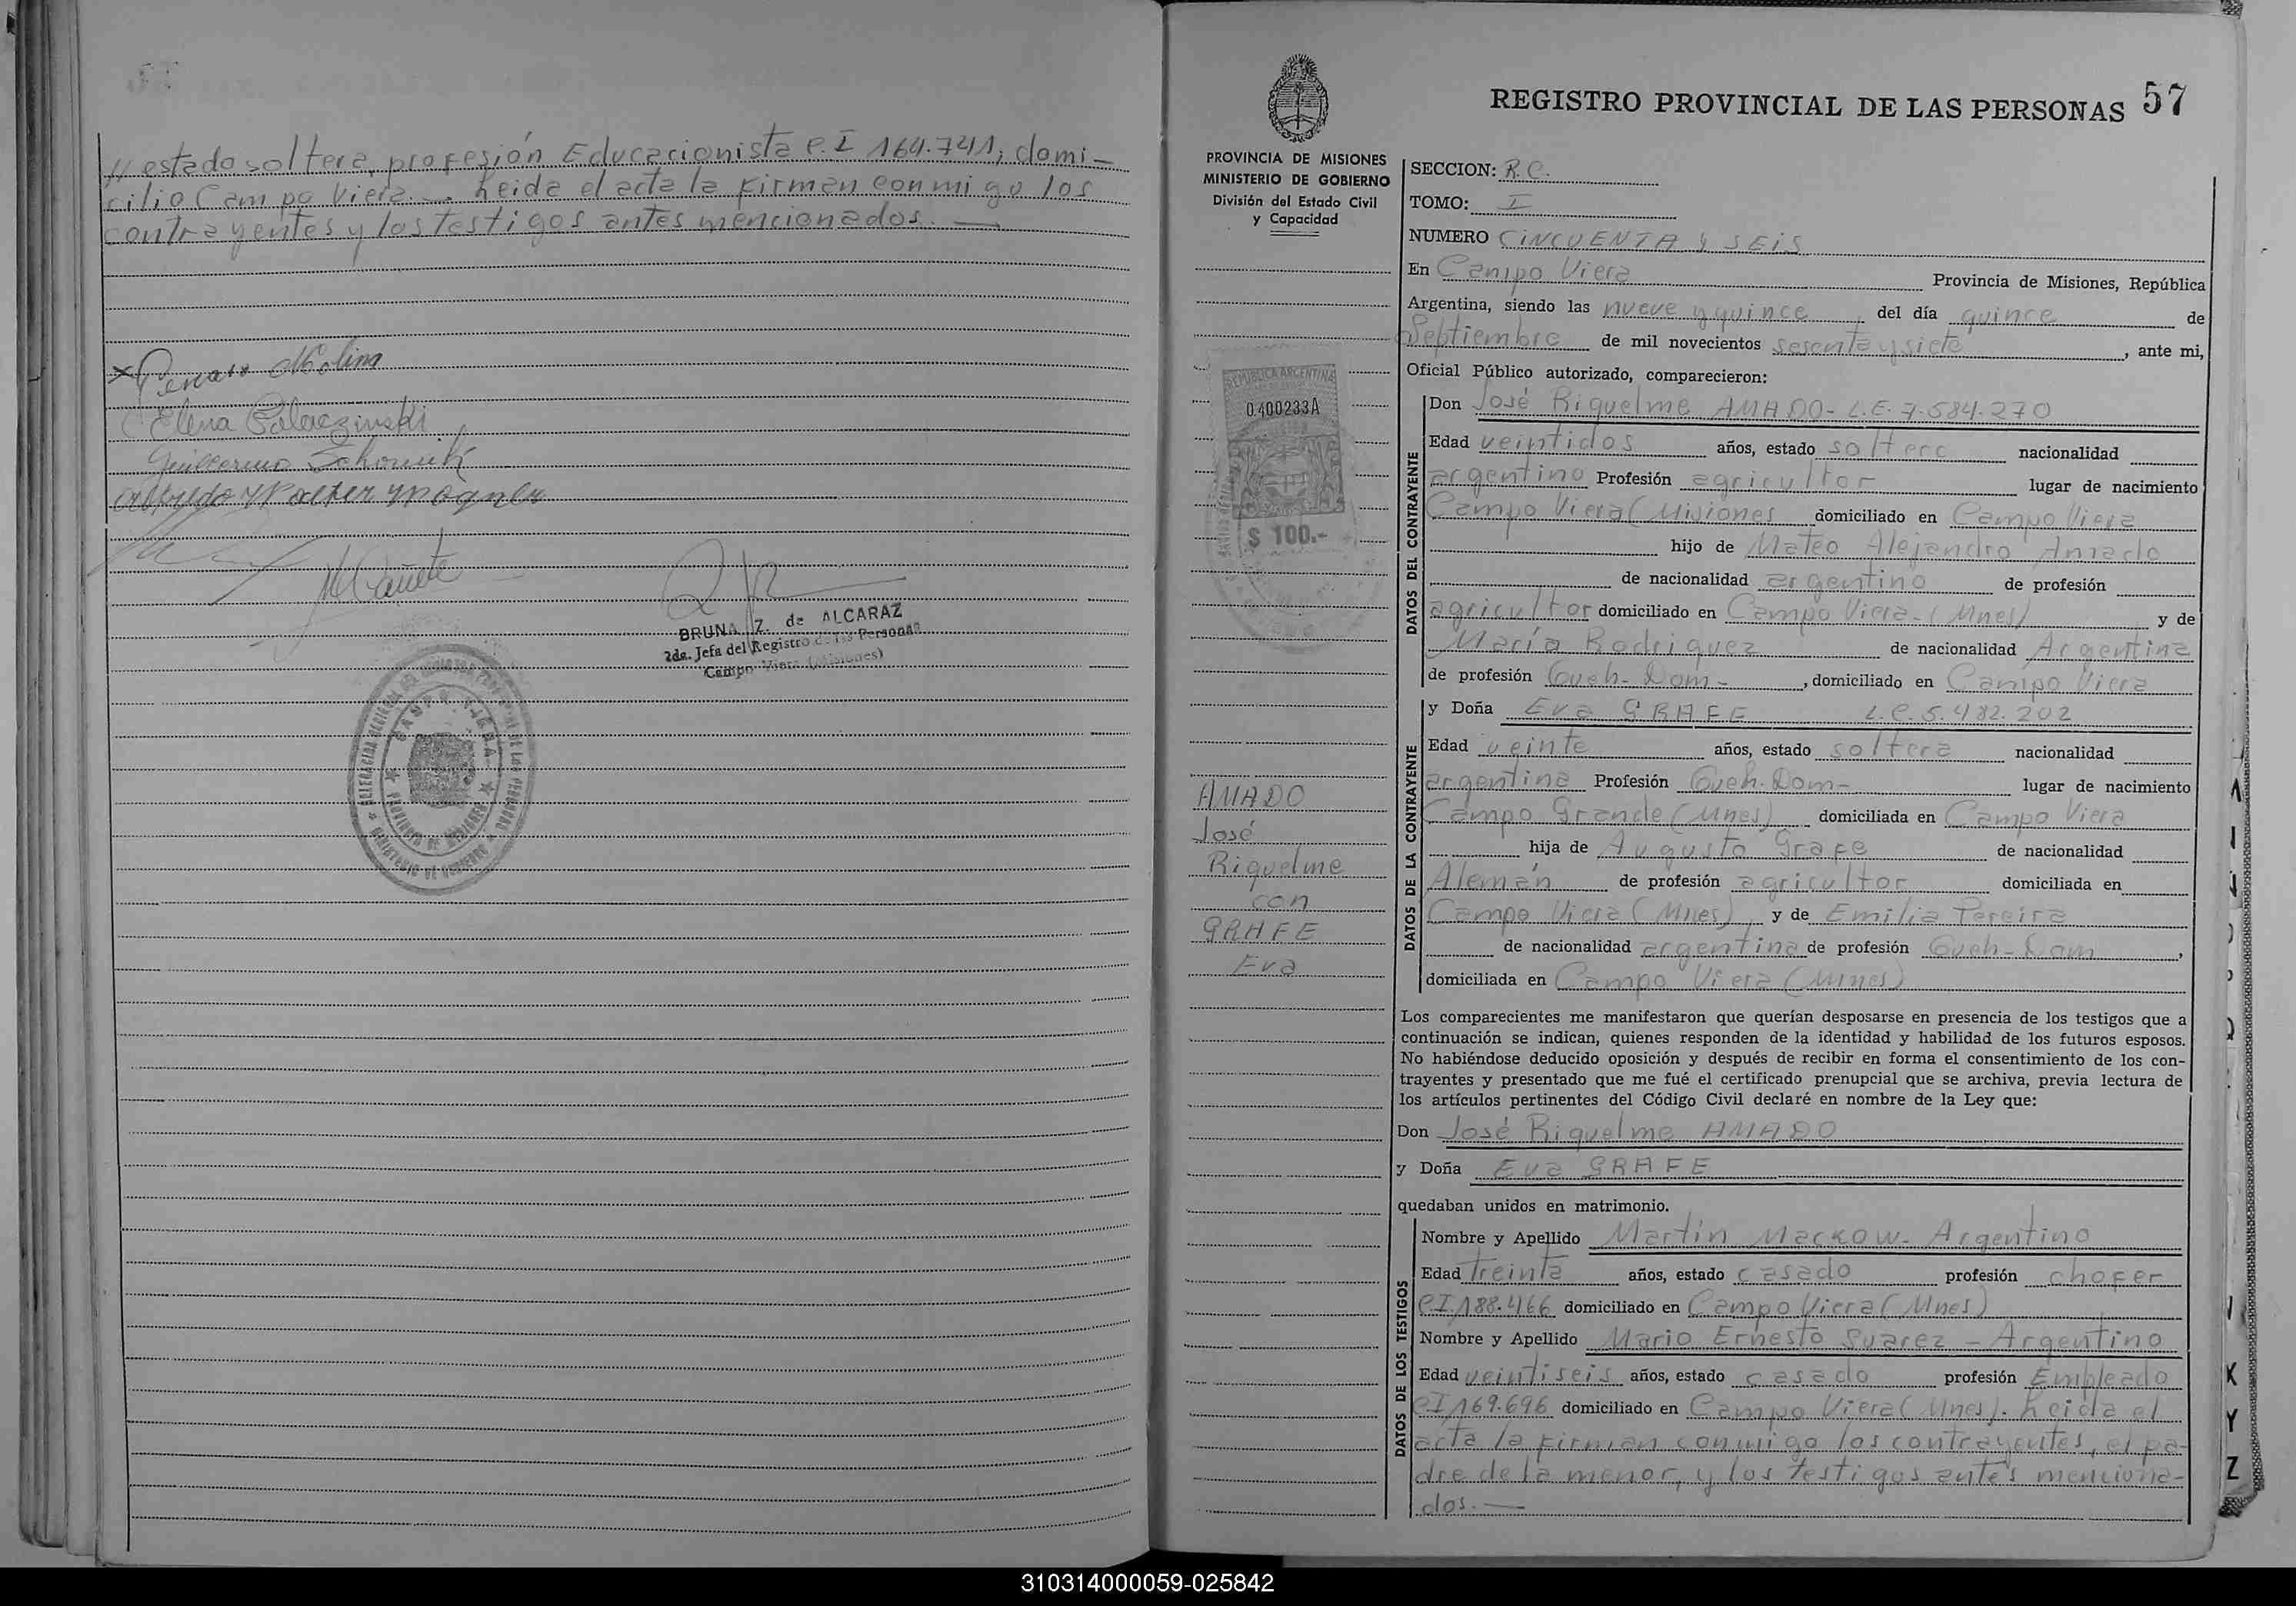 // estado soltera, profesión Educacionista C.I 164.741, domi-
cilio Campo Viera.- Leida el acta la firman conmigo los
contrayentes y los testigos antes mencionados. —
Genaro Molina
Elena Palaczinski
Guillermo
Alfredo Walter Wagner
MCañete
BRUNA Z. de ALCARAZ
2da. Jefa del Registro de las Personas
Campo Viera (Misiones)
CAMPO VIERA
PROVINCIA DE MISIONES
MINISTERIO DE GOBIERNO
REGISTRO PROVINCIAL DE LAS PERSONAS 57
PROVINCIA DE MISIONES
MINISTERIO DE GOBIERNO
División del Estado Civil
y Capacidad
REPUBLICA ARGENTINA
0400233A
$ 100.-
AMADO
José
Riquelme
con
GRAFE
Eva
SECCION: R.C.
TOMO: I
NUMERO CINCUENTA Y SEIS
En Campo Viera Provincia de Misiones, República
Argentina, siendo las nueve y quince del día quince de
Septiembre de mil novecientos sesenta y siete, ante mi,
Oficial Público autorizado, comparecieron:
DATOS DEL CONTRAYENTE
Don José Riquelme AMADO- L.E. 7.584.270
Edad veintidos años, estado soltero nacionalidad
argentino Profesión agricultor lugar de nacimiento
Campo Viera (Misiones domiciliado en Campo Viera
hijo de Mateo Alejandro Amado
de nacionalidad argentino de profesión
agricultor domiciliado en Campo Viera-(Mnes) y de
María Rodriguez de nacionalidad Argentina
de profesión Queh-Dom-, domiciliado en Campo Viera
DATOS DE LA CONTRAYENTE
y Doña Eva GRAFE L.C. 5.482.202
Edad veinte años, estado soltera nacionalidad
argentina Profesión Queh.Dom- lugar de nacimiento
Campo Grande (Mnes) domiciliada en Campo Viera
hija de Augusto Grafe de nacionalidad
Alemán de profesión agricultor domiciliada en
Campo Viera (Mnes) y de Emilia Pereira
de nacionalidad argentina de profesión Queh-Dom,
domiciliada en Campo Viera (Mnes)
Los comparecientes me manifestaron que querían desposarse en presencia de los testigos que a
continuación se indican, quienes responden de la identidad y habilidad de los futuros esposos.
No habiéndose deducido oposición y después de recibir en forma el consentimiento de los con-
trayentes y presentado que me fué el certificado prenupcial que se archiva, previa lectura de
los artículos pertinentes del Código Civil declaré en nombre de la Ley que:
Don José Riquelme AMADO
y Doña Eva GRAFE
quedaban unidos en matrimonio.
DATOS DE LOS TESTIGOS
Nombre y Apellido Martín Markow- Argentino
Edad treinta años, estado casado profesión chofer
C.I.188.466 domiciliado en Campo Viera (Mnes)
Nombre y Apellido Mario Ernesto Suarez - Argentino
Edad veintiseis años, estado casado profesión Empleado
C.I 169.696 domiciliado en Campo Viera (Mnes). Leida el
acta la firman conmigo los contrayentes, el pa-
dre de la menor, y los testigos antes menciona-
dos.—
K
Y
Z
310314000059-025842